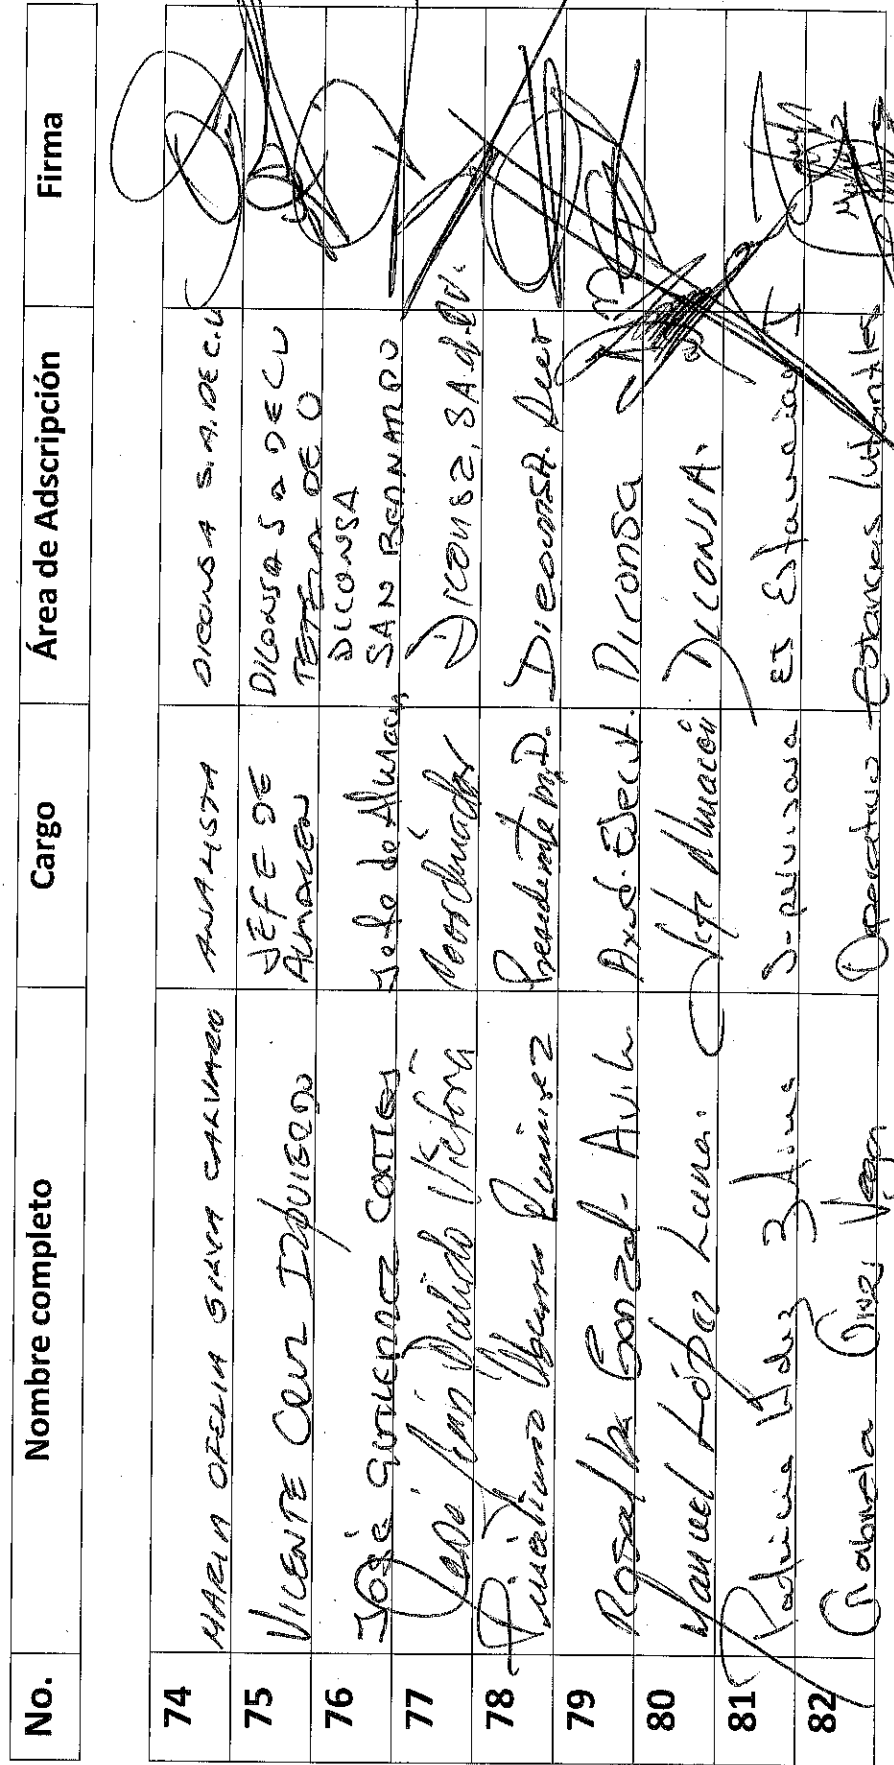 No. Nombre completo Cargo Área de Adscripción Firma
74 MARIA OFELIA SILVA CALVARIO ANALISTA DICONSA S.A. DE C.V
75 VICENTE CRUZ IZQUIERDO JEFE DE ALMACEN DICONSA S A DE CV
76 José GUTIERREZ CORTES Jefe de Almacen DICONSA SAN BERNARDO
77 Victoria Coordinador Diconsa, SA.d.cv.
78 Ramirez Presidente M.D. DICONSA.
79 Rosalba Gonzal- Avila. Diconsa
80 Manuel López Luna. Jefe Almacén DICONSA.
81 Patricia Supervisora Estancias I
82 Gabriela Vega Operativo Estancias Infantiles